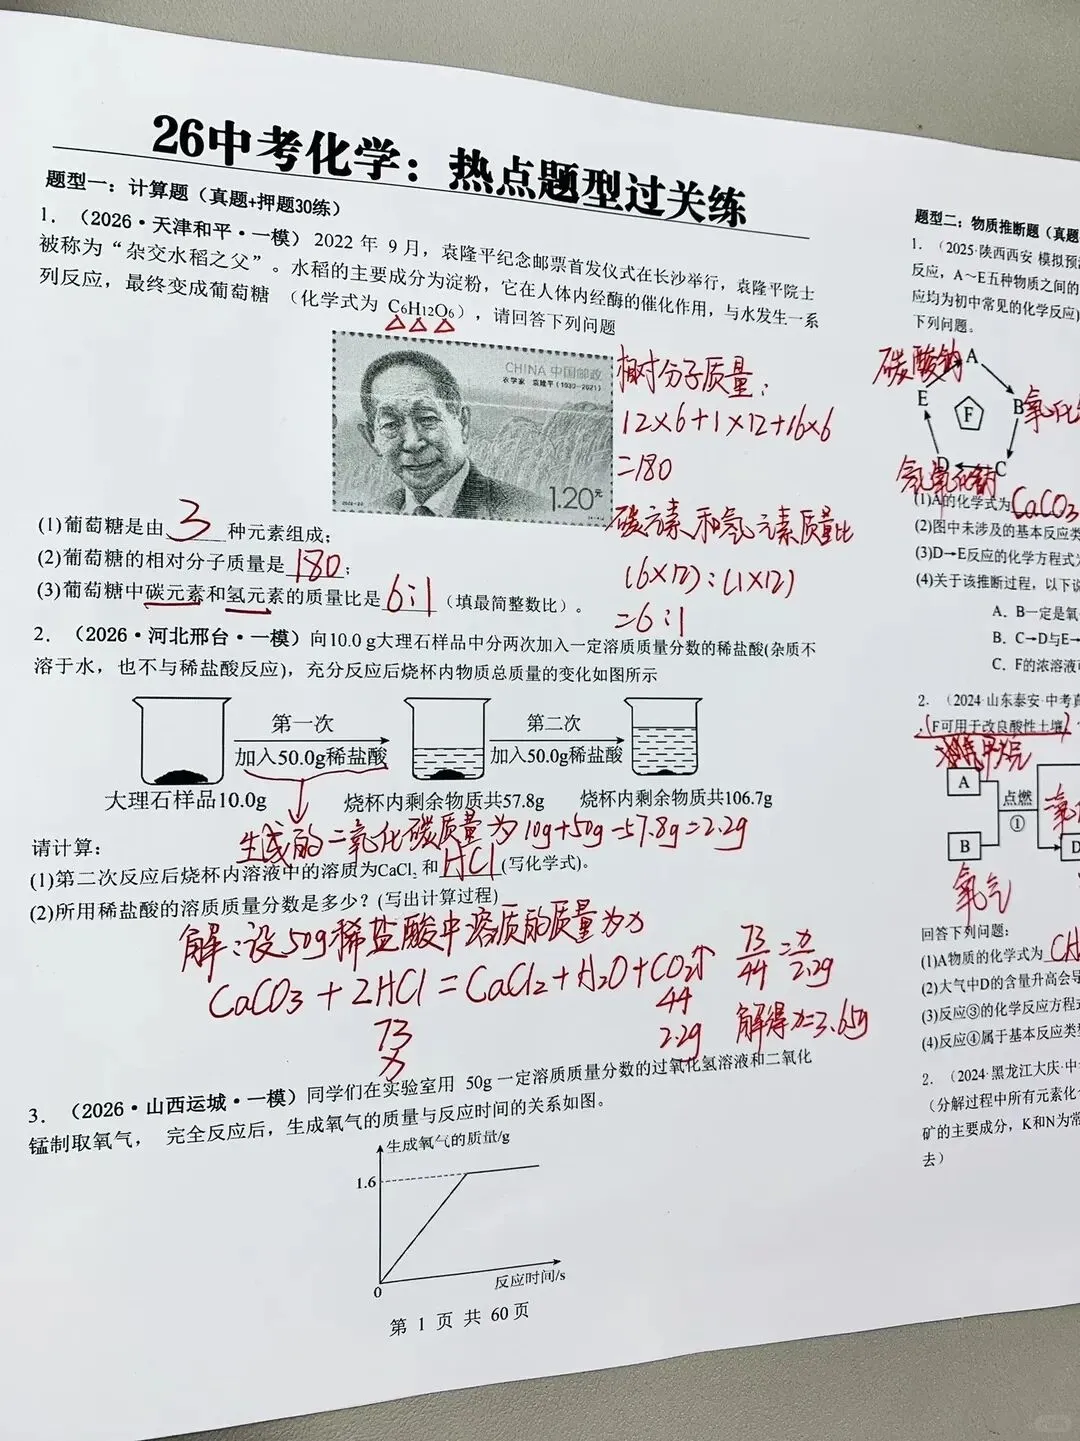 26中考化学：热点题型过关练
题型一：计算题（真题+押题30练）
1. （2026·天津和平·一模）2022 年 9 月，袁隆平纪念邮票首发仪式在长沙举行，袁隆平院士
被称为“杂交水稻之父”。水稻的主要成分为淀粉，它在人体内经酶的催化作用，与水发生一系
列反应，最终变成葡萄糖 （化学式为 C₆H₁₂O₆），请回答下列问题
CHINA 中国邮政
农学家 袁隆平（1930—2021）
1.20元
相对分子质量：
12×6+1×12+16×6
=180
碳元素和氢元素质量比
(6×12):(1×12)
=6:1
(1)葡萄糖是由 3 种元素组成；
(2)葡萄糖的相对分子质量是 180；
(3)葡萄糖中碳元素和氢元素的质量比是 6:1 （填最简整数比）。
2. （2026·河北邢台·一模）向10.0 g大理石样品中分两次加入一定溶质质量分数的稀盐酸(杂质不
溶于水，也不与稀盐酸反应)，充分反应后烧杯内物质总质量的变化如图所示
第一次
加入50.0g稀盐酸
第二次
加入50.0g稀盐酸
大理石样品10.0g
烧杯内剩余物质共57.8g
烧杯内剩余物质共106.7g
生成的二氧化碳质量为10g+50g-57.8g=2.2g
请计算：
(1)第二次反应后烧杯内溶液中的溶质为CaCl₂ 和 HCl (写化学式)。
(2)所用稀盐酸的溶质质量分数是多少？(写出计算过程)
解：设50g稀盐酸中溶质的质量为x
CaCO₃+2HCl=CaCl₂+H₂O+CO₂↑
73 44
x 2.2g
73/44=x/2.2g
解得x=3.65g
3. （2026·山西运城·一模）同学们在实验室用 50g 一定溶质质量分数的过氧化氢溶液和二氧化
锰制取氧气， 完全反应后，生成氧气的质量与反应时间的关系如图。
生成氧气的质量/g
1.6
0
反应时间/s
第 1 页 共 60 页
题型二：物质推断题（真题
1. （2025·陕西西安 模拟预
反应，A～E五种物质之间的
应均为初中常见的化学反应)
下列问题。
碳酸钠
A
E
F
B
D
C
氢氧化钠
(1)A的化学式为 CaCO₃
(2)图中未涉及的基本反应类
(3)D→E反应的化学方程式为
(4)关于该推断过程，以下说
A. B一定是氧
B. C→D与E→
C. F的浓溶液可
2. （2024·山东泰安·中考真
(F可用于改良酸性土壤)
甲烷
A
点燃
①
B
D
氧气
回答下列问题：
(1)A物质的化学式为 CH
(2)大气中D的含量升高会导
(3)反应③的化学反应方程式
(4)反应④属于基本反应类型
2. （2024·黑龙江大庆·中
（分解过程中所有元素化
矿的主要成分，K和N为常
去）